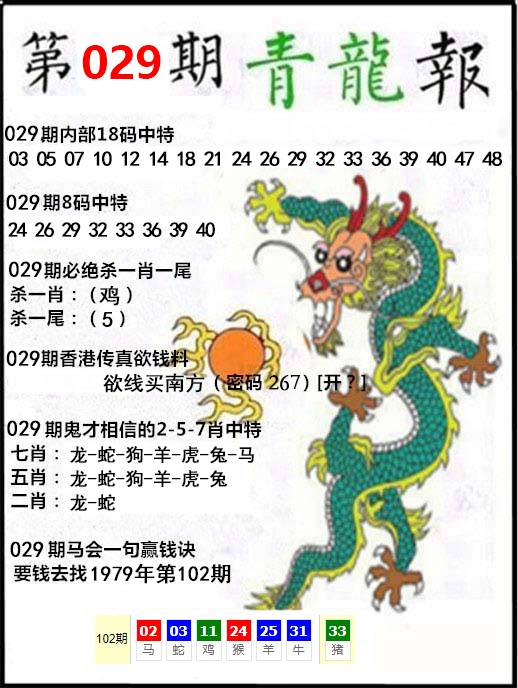 第029期青龍報
029期内部18码中特
03 05 07 10 12 14 18 21 24 26 29 32 33 36 39 40 47 48
029期8码中特
24 26 29 32 33 36 39 40
029期必绝杀一肖一尾
杀一肖：（鸡）
杀一尾：（5）
029期香港传真欲钱料
欲线买南方（密码 267）[开？]
029期鬼才相信的2-5-7肖中特
七肖：龙-蛇-狗-羊-虎-兔-马
五肖：龙-蛇-狗-羊-虎-兔
二肖：龙-蛇
029期马会一句赢钱诀
要钱去找1979年第102期
102期 02 03 11 24 25 31 33
马 蛇 鸡 猴 羊 牛 猪